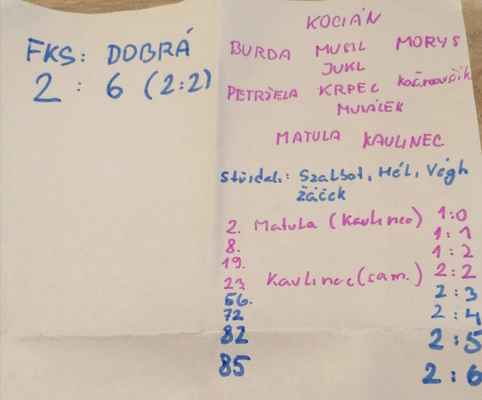 FKS: DOBRÁ
2 : 6 (2:2)
KOCIÁN
BURDA MUSIL MORYS
JUKL
PETRŽELA KRPEC
MUSÁLEK
MATULA KAULINEC
Střídal.: Szalbot, Hél, Végh
Žáček
2. Matula (Kaulinec) 1:0
8. 1:1
19. 1:2
23 Kaulinec (sam.) 2:2
56. 2:3
72 2:4
82 2:5
85 2:6